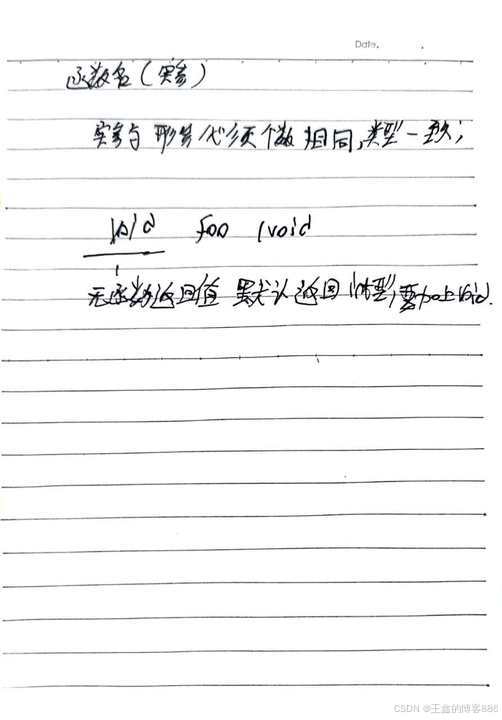 Date.
函数名(实参)
实参与 形参必须个数 相同,类型一致;
void foo (void
无函数返回值 默认返回 int型,要加上void.
CSDN @王鑫的博客886